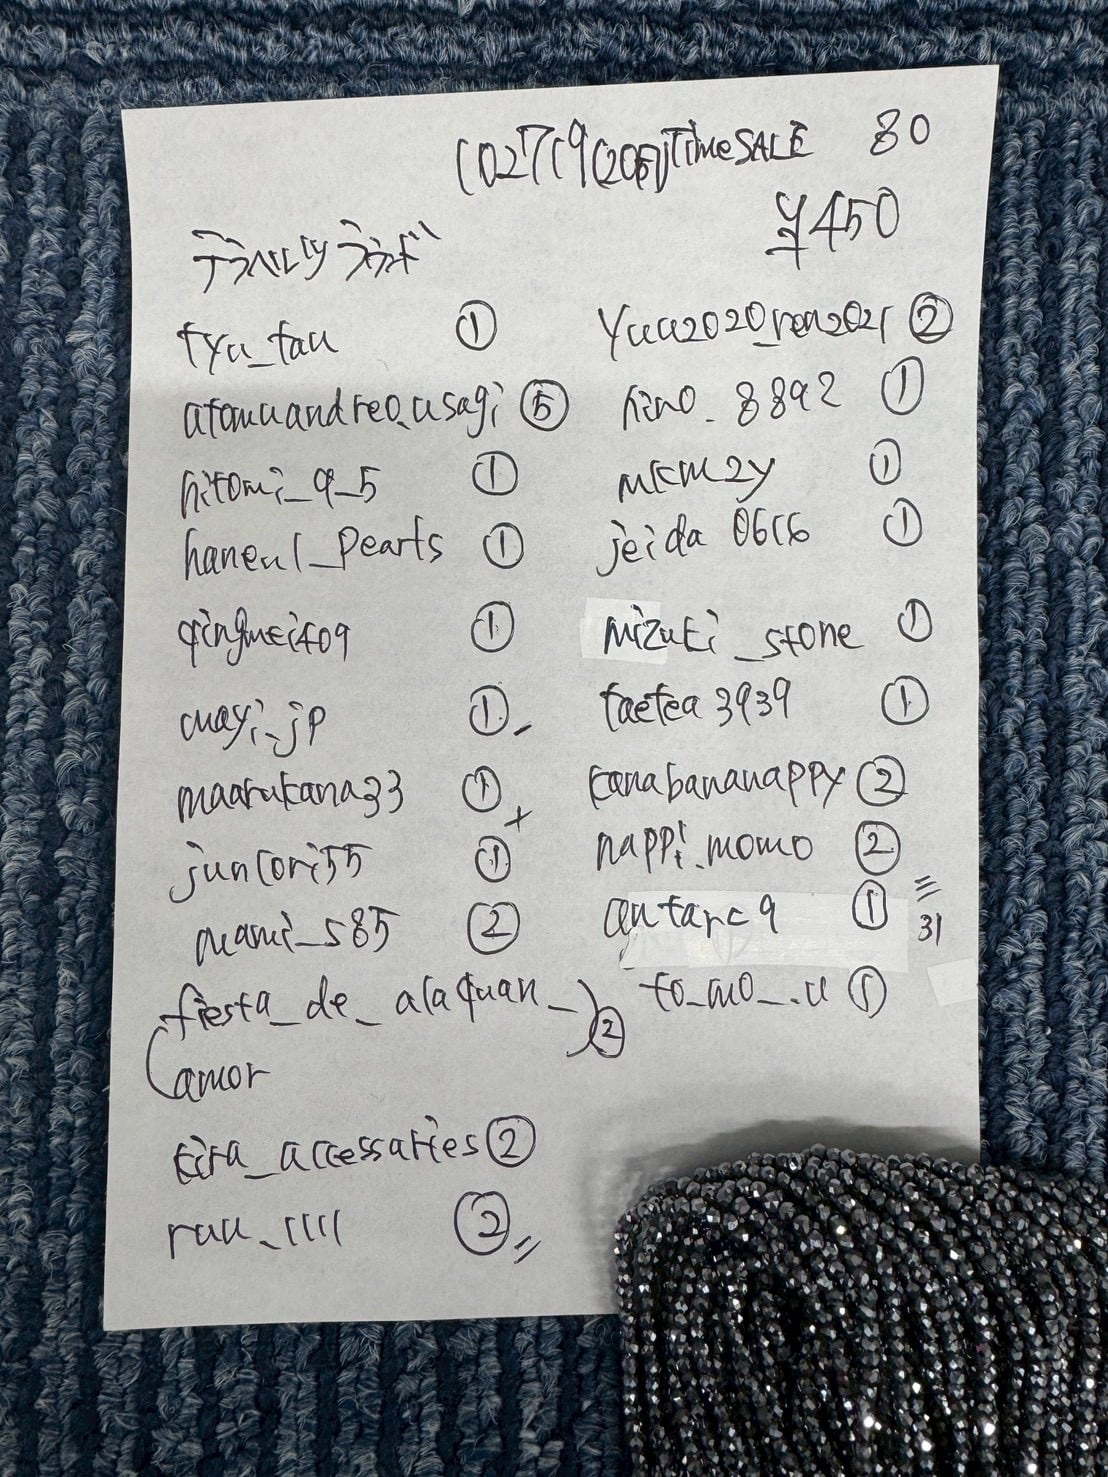 TimeSALE 80
¥450
テラヘルツ
tyu_tau ①
atomuandreo_usagi ⑤
hitomi_9_5 ①
haneul_pearls ①
qingmei409 ①
mayi_jp ①
maarukana33 ①
juncori55 ①
mami_s85 ②
fiesta_de_alaquan_
amor ②
kira_accessaries ②
ruu_1111 ②
yuu2020_ren2021 ②
hino_8892 ①
mkm2y ①
jeida0616 ①
mizuki_stone ①
taetea3939 ①
kanabananappy ②
nappi_momo ②
①
31
to_mo_.u ①